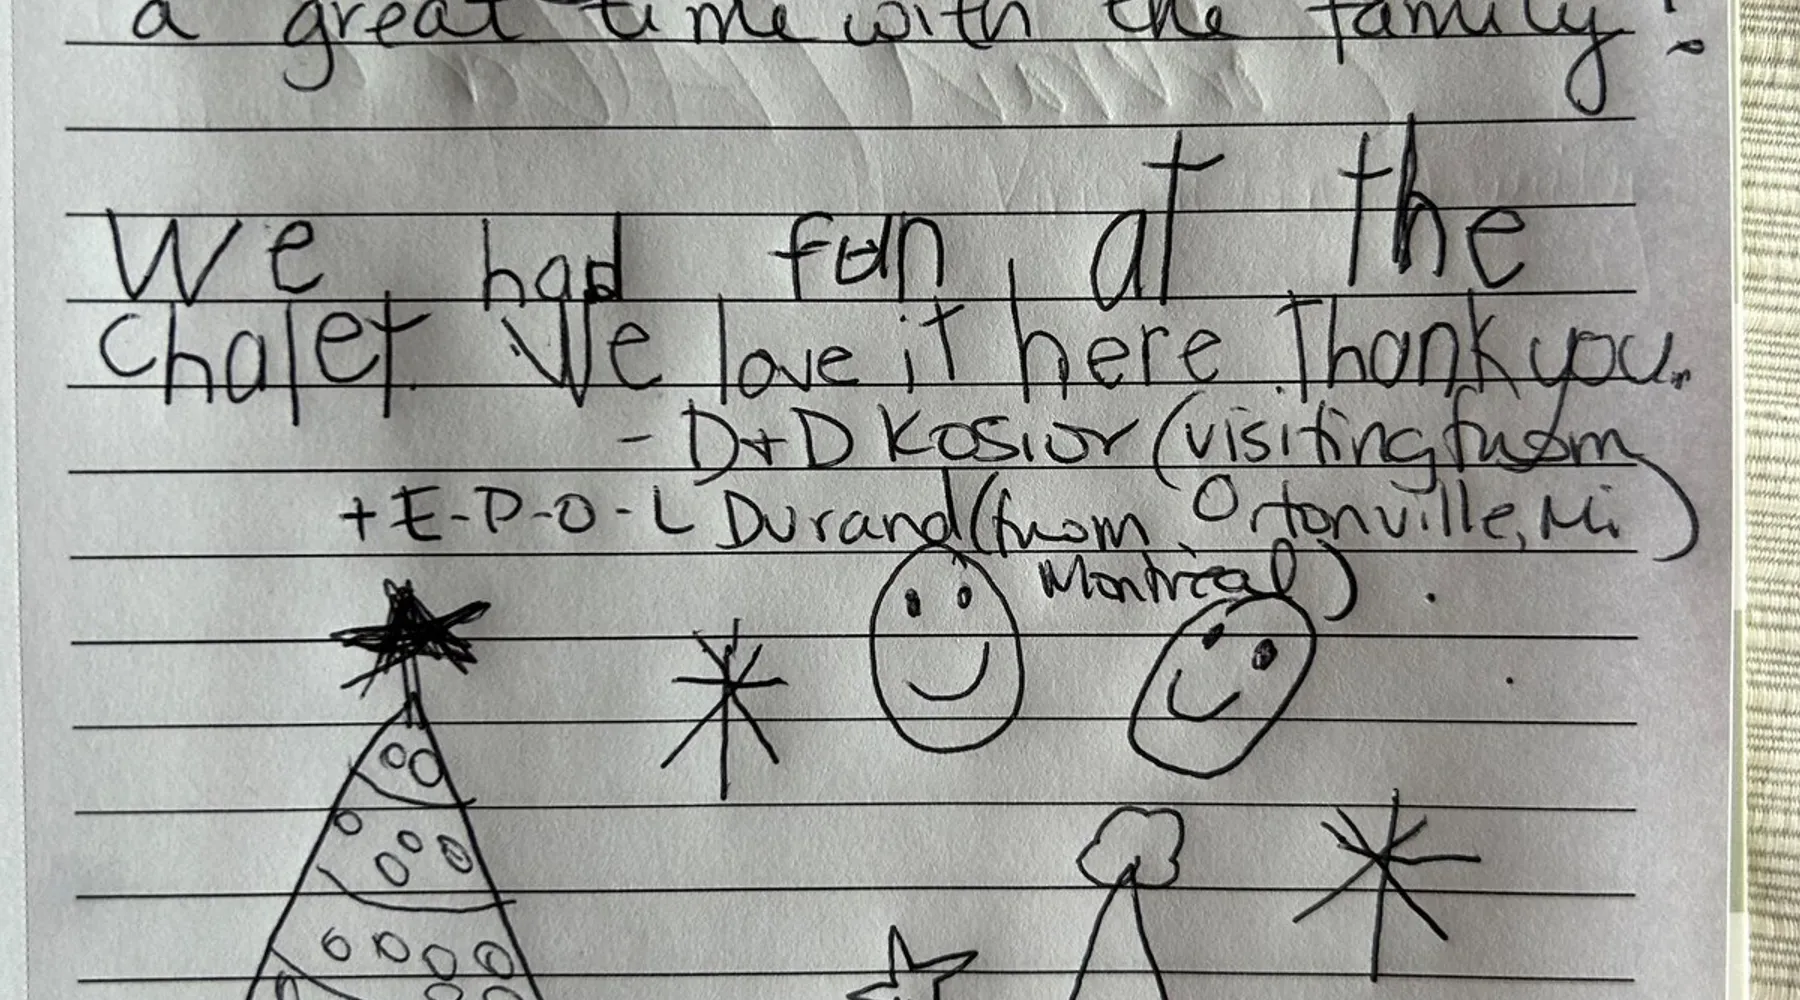 a great time with the family!
We had fun at the
chalet. We love it here. Thank you.
- D+D Kosior (visiting from
+ E-P-O-L Durand (from Ortonville, Mi)
Montréal)